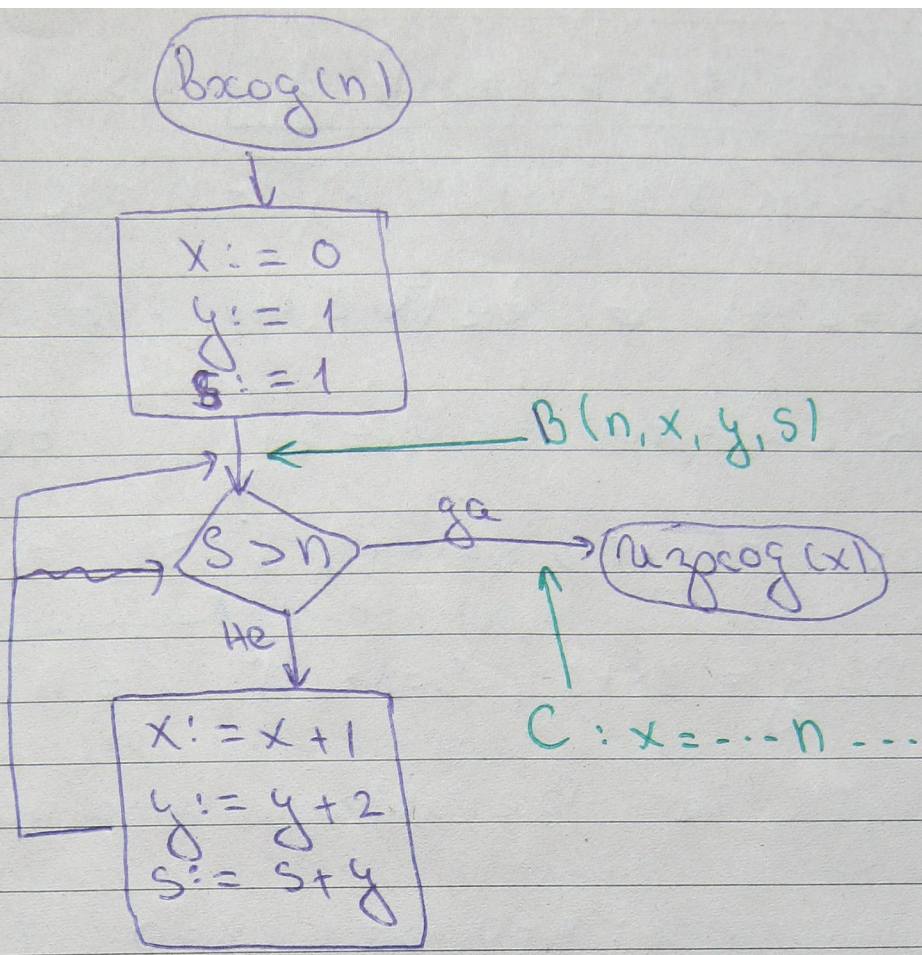 Вход(n)
x := 0
y := 1
s := 1
B(n, x, y, s)
s > n
да
изход(x)
не
C : x = ... n ...
x := x + 1
y := y + 2
s := s + y